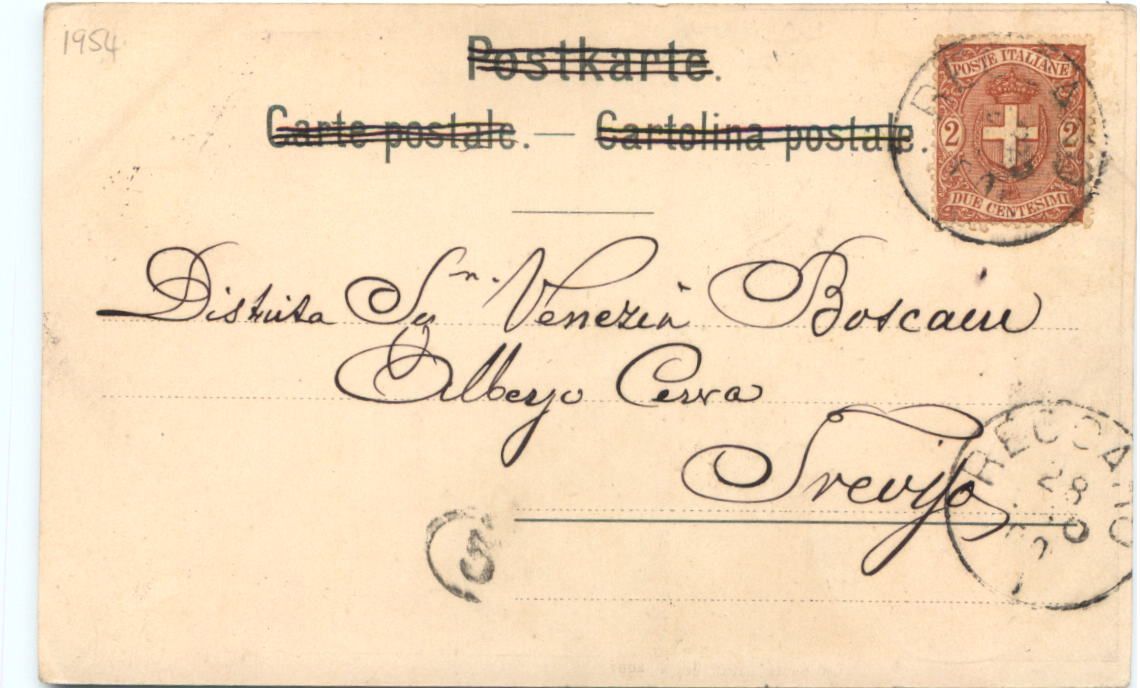 1954
Postkarte.
Carte postale. — Cartolina postale
POSTE ITALIANE
2 2
DUE CENTESIMI
Distinta Sign. Venezia Boscain
Albergo Cerva
Treviso
RECOARO
28
S